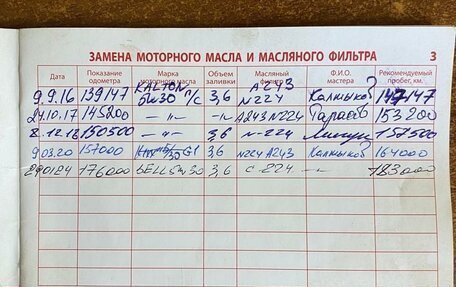 ЗАМЕНА МОТОРНОГО МАСЛА И МАСЛЯНОГО ФИЛЬТРА 3
Дата Показание одометра Марка моторного масла Объем заливки Масляный фильтр Ф.И.О. мастера Рекомендуемый пробег, км.
9.9.16 139147 KALTON 5w30 п/с 3,6 A243 N224 Калмыков 147147
24.10.17 145200 -"- -"- A243 N224 Тарасов 153200
8.12.18 150500 -"- 3,6 n-224 158500
9.03.20 157000 5/30 G1 3,6 N224 A243 Калмыков 164000
290124 176000 5w30 3,6 C-224 -"- 183000